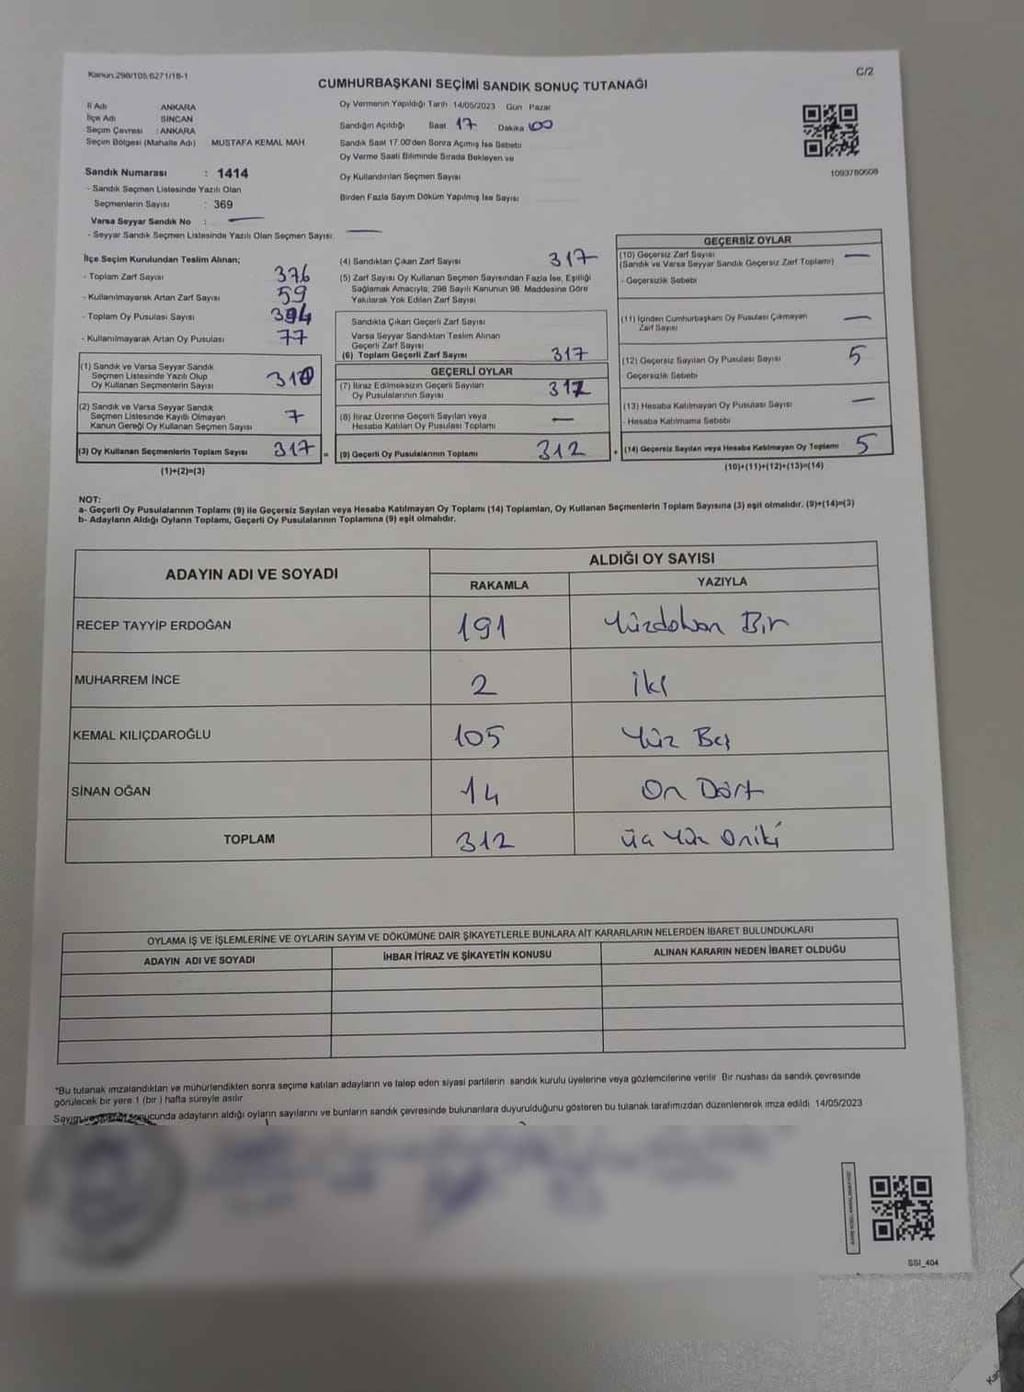 Kanun.298/105.6271/18-1
C/2
CUMHURBAŞKANI SEÇİMİ SANDIK SONUÇ TUTANAĞI
İl Adı : ANKARA
İlçe Adı : SİNCAN
Seçim Çevresi : ANKARA
Seçim Bölgesi (Mahalle Adı) MUSTAFA KEMAL MAH
Sandık Numarası : 1414
- Sandık Seçmen Listesinde Yazılı Olan
Seçmenlerin Sayısı : 369
Varsa Seyyar Sandık No : —
- Seyyar Sandık Seçmen Listesinde Yazılı Olan Seçmen Sayısı: —
Oy Vermenin Yapıldığı Tarih 14/05/2023 Gün Pazar
Sandığın Açıldığı Saat 17 Dakika 00
Sandık Saat 17.00'den Sonra Açılmış İse Sebebi
Oy Verme Saati Bitiminde Sırada Bekleyen ve
Oy Kullandırılan Seçmen Sayısı
Birden Fazla Sayım Döküm Yapılmış İse Sayısı
1093780608
İlçe Seçim Kurulundan Teslim Alınan;
- Toplam Zarf Sayısı 376
- Kullanılmayarak Artan Zarf Sayısı 59
- Toplam Oy Pusulası Sayısı 394
- Kullanılmayarak Artan Oy Pusulası 77
(1) Sandık ve Varsa Seyyar Sandık
Seçmen Listesinde Yazılı Olup
Oy Kullanan Seçmenlerin Sayısı 310
(2) Sandık ve Varsa Seyyar Sandık
Seçmen Listesinde Kayıtlı Olmayan
Kanun Gereği Oy Kullanan Seçmen Sayısı 7
(3) Oy Kullanan Seçmenlerin Toplam Sayısı 317
(1)+(2)=(3)
(4) Sandıktan Çıkan Zarf Sayısı 317
(5) Zarf Sayısı Oy Kullanan Seçmen Sayısından Fazla İse, Eşitliği
Sağlamak Amacıyla, 298 Sayılı Kanunun 98. Maddesine Göre
Yakılarak Yok Edilen Zarf Sayısı
Sandıkta Çıkan Geçerli Zarf Sayısı
Varsa Seyyar Sandıktan Teslim Alınan
Geçerli Zarf Sayısı
(6) Toplam Geçerli Zarf Sayısı 317
GEÇERLİ OYLAR
(7) İtiraz Edilmeksizin Geçerli Sayılan
Oy Pusulalarının Sayısı 312
(8) İtiraz Üzerine Geçerli Sayılan veya
Hesaba Katılan Oy Pusulası Toplamı —
= (9) Geçerli Oy Pusulalarının Toplamı 312
GEÇERSİZ OYLAR
(10) Geçersiz Zarf Sayısı —
(Sandık ve Varsa Seyyar Sandık Geçersiz Zarf Toplamı)
- Geçersizlik Sebebi
(11) İçinden Cumhurbaşkanı Oy Pusulası Çıkmayan —
Zarf Sayısı
(12) Geçersiz Sayılan Oy Pusulası Sayısı 5
Geçersizlik Sebebi
(13) Hesaba Katılmayan Oy Pusulası Sayısı —
- Hesaba Katılmama Sebebi
+ (14) Geçersiz Sayılan veya Hesaba Katılmayan Oy Toplamı 5
(10)+(11)+(12)+(13)=(14)
NOT:
a- Geçerli Oy Pusulalarının Toplamı (9) ile Geçersiz Sayılan veya Hesaba Katılmayan Oy Toplamı (14) Toplamları, Oy Kullanan Seçmenlerin Toplam Sayısına (3) eşit olmalıdır. (9)+(14)=(3)
b- Adayların Aldığı Oyların Toplamı, Geçerli Oy Pusulalarının Toplamına (9) eşit olmalıdır.
ADAYIN ADI VE SOYADI ALDIĞI OY SAYISI
RAKAMLA YAZIYLA
RECEP TAYYİP ERDOĞAN 191 Yüzdoksan Bir
MUHARREM İNCE 2 iki
KEMAL KILIÇDAROĞLU 105 Yüz Beş
SİNAN OĞAN 14 On Dört
TOPLAM 312 üç Yüz Oniki
OYLAMA İŞ VE İŞLEMLERİNE VE OYLARIN SAYIM VE DÖKÜMÜNE DAİR ŞİKAYETLERLE BUNLARA AİT KARARLARIN NELERDEN İBARET BULUNDUKLARI
ADAYIN ADI VE SOYADI İHBAR İTİRAZ VE ŞİKAYETİN KONUSU ALINAN KARARIN NEDEN İBARET OLDUĞU
"Bu tutanak imzalandıktan ve mühürlendikten sonra seçime katılan adayların ve talep eden siyasi partilerin sandık kurulu üyelerine veya gözlemcilerine verilir. Bir nüshası da sandık çevresinde
görülecek bir yere 1 (bir) hafta süreyle asılır.
sonucunda adayların aldığı oyların sayılarını ve bunların sandık çevresinde bulunanlara duyurulduğunu gösteren bu tutanak tarafımızdan düzenlenerek imza edildi. 14/05/2023
SSI_404